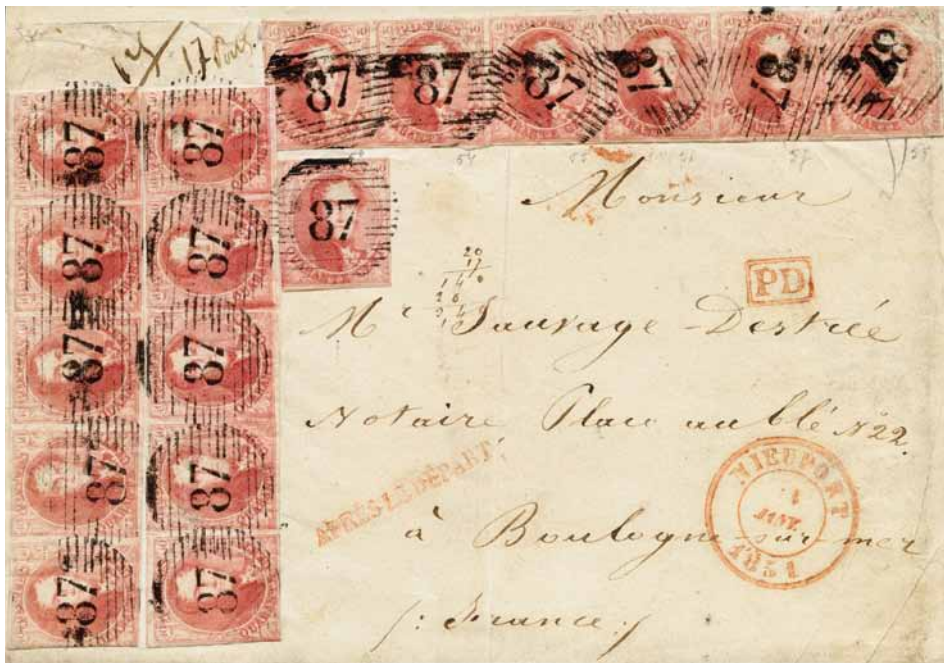 17 Port.
87 87 87 87 87 87
87 87
87 87
87 87
87 87
87 87
87
54 55 56 57 58
Monsieur
20
17
140
20
PD
Mr Sauvage-Destrée
Notaire Place au blé N 22.
APRÈS LE DÉPART
NIEUPORT
JANV.
1851
à Boulogne-sur-mer
/: France :/